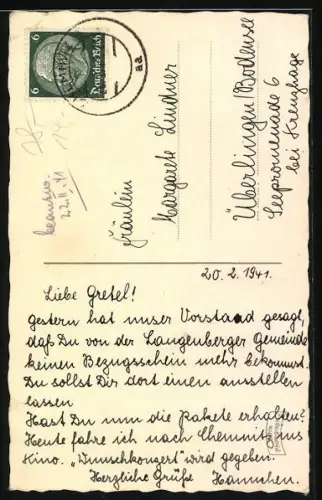 6 6
Deutsches Reich
aa
28,-
14.-
beantw.
22.II.41
Fräulein
Margarete Lindner
Überlingen/Bodensee
Seepromenade 6
bei Kreuzhage
20.2.1941.
Liebe Gretel!
Gestern hat unser Vorstand gesagt,
daß Du von der Langenberger Gemeinde
keinen Bezugsschein mehr bekommst.
Du sollst Dir dort einen ausstellen
lassen.
Hast Du nun die Pakete erhalten?
Heute fahre ich nach Chemnitz ins
Kino. „Wunschkonzert" wird gegeben.
Herzliche Grüße Hannchen.